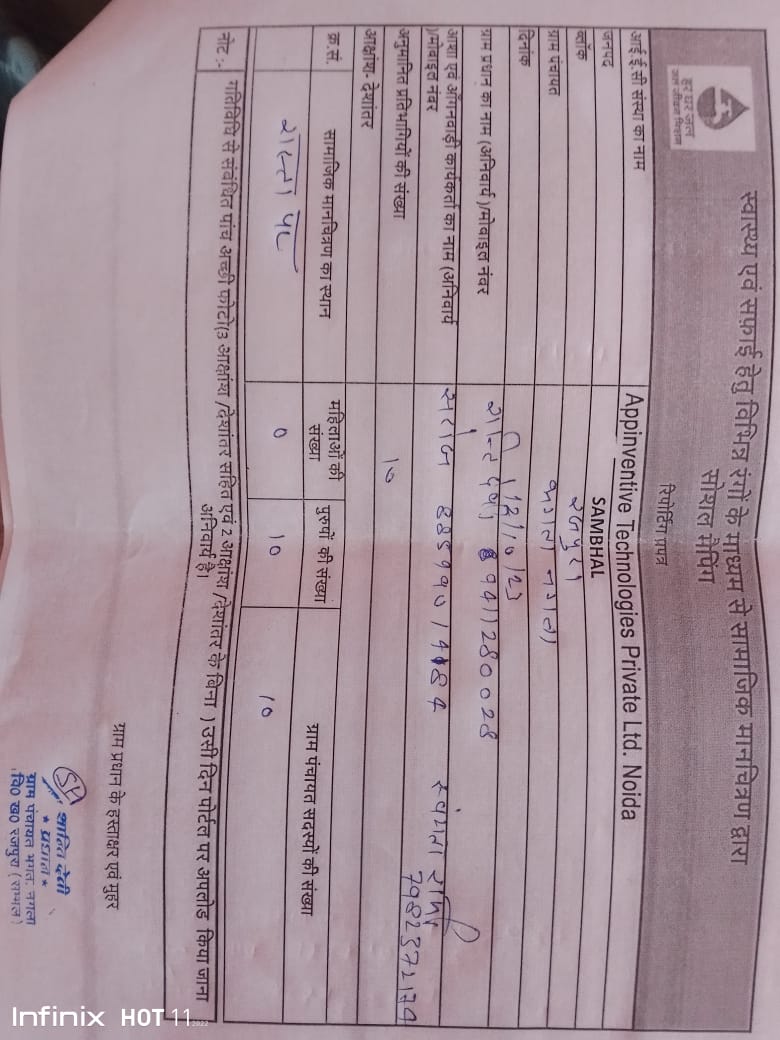 हर घर जल
जल जीवन मिशन
स्वास्थ्य एवं सफाई हेतु विभिन्न रंगों के माध्यम से सामाजिक मानचित्रण द्वारा
सोशल मैपिंग
रिपोर्टिंग प्रपत्र
आई.ई.सी संस्था का नाम Appinventive Technologies Private Ltd. Noida
जनपद SAMBHAL
ब्लॉक रजपुरा
ग्राम पंचायत नगला
दिनांक 12/10/23
ग्राम प्रधान का नाम (अनिवार्य )/मोबाइल नंबर शान्ति देवी 9411280028
आशा एवं आँगनवाड़ी कार्यकर्ता का नाम (अनिवार्य
)/मोबाइल नंबर सरोज
अनुमानित प्रतिभागियों की संख्या 10
आक्षांश- देशांतर
क्र.सं. सामाजिक मानचित्रण का स्थान महिलाओं की संख्या पुरुषों की संख्या ग्राम पंचायत सदस्यों की संख्या
रास्ता पर 0 10 10
नोट :- गतिविधि से संबंधित पांच अच्छी फोटो(3 आक्षांश /देशांतर सहित एवं 2 आक्षांश /देशांतर के बिना ) उसी दिन पोर्टल पर अपलोड किया जाना
अनिवार्य है।
ग्राम प्रधान के हस्ताक्षर एवं मुहर
शान्ति देवी
* प्रधान *
ग्राम पंचायत नगला
वि० ख० रजपुरा (सम्भल)
Infinix HOT 11 2022